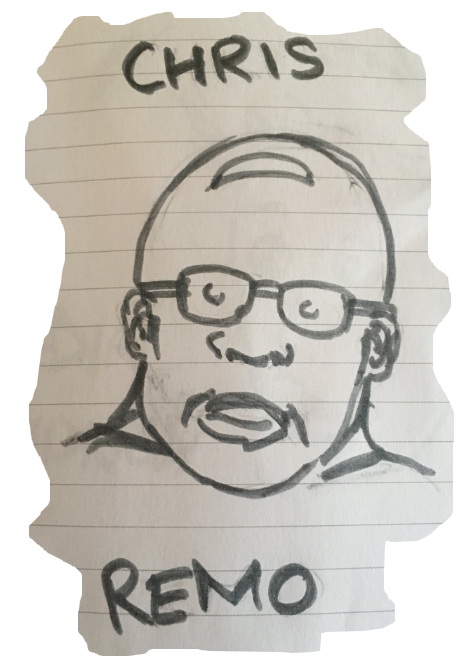 CHRIS
REMO